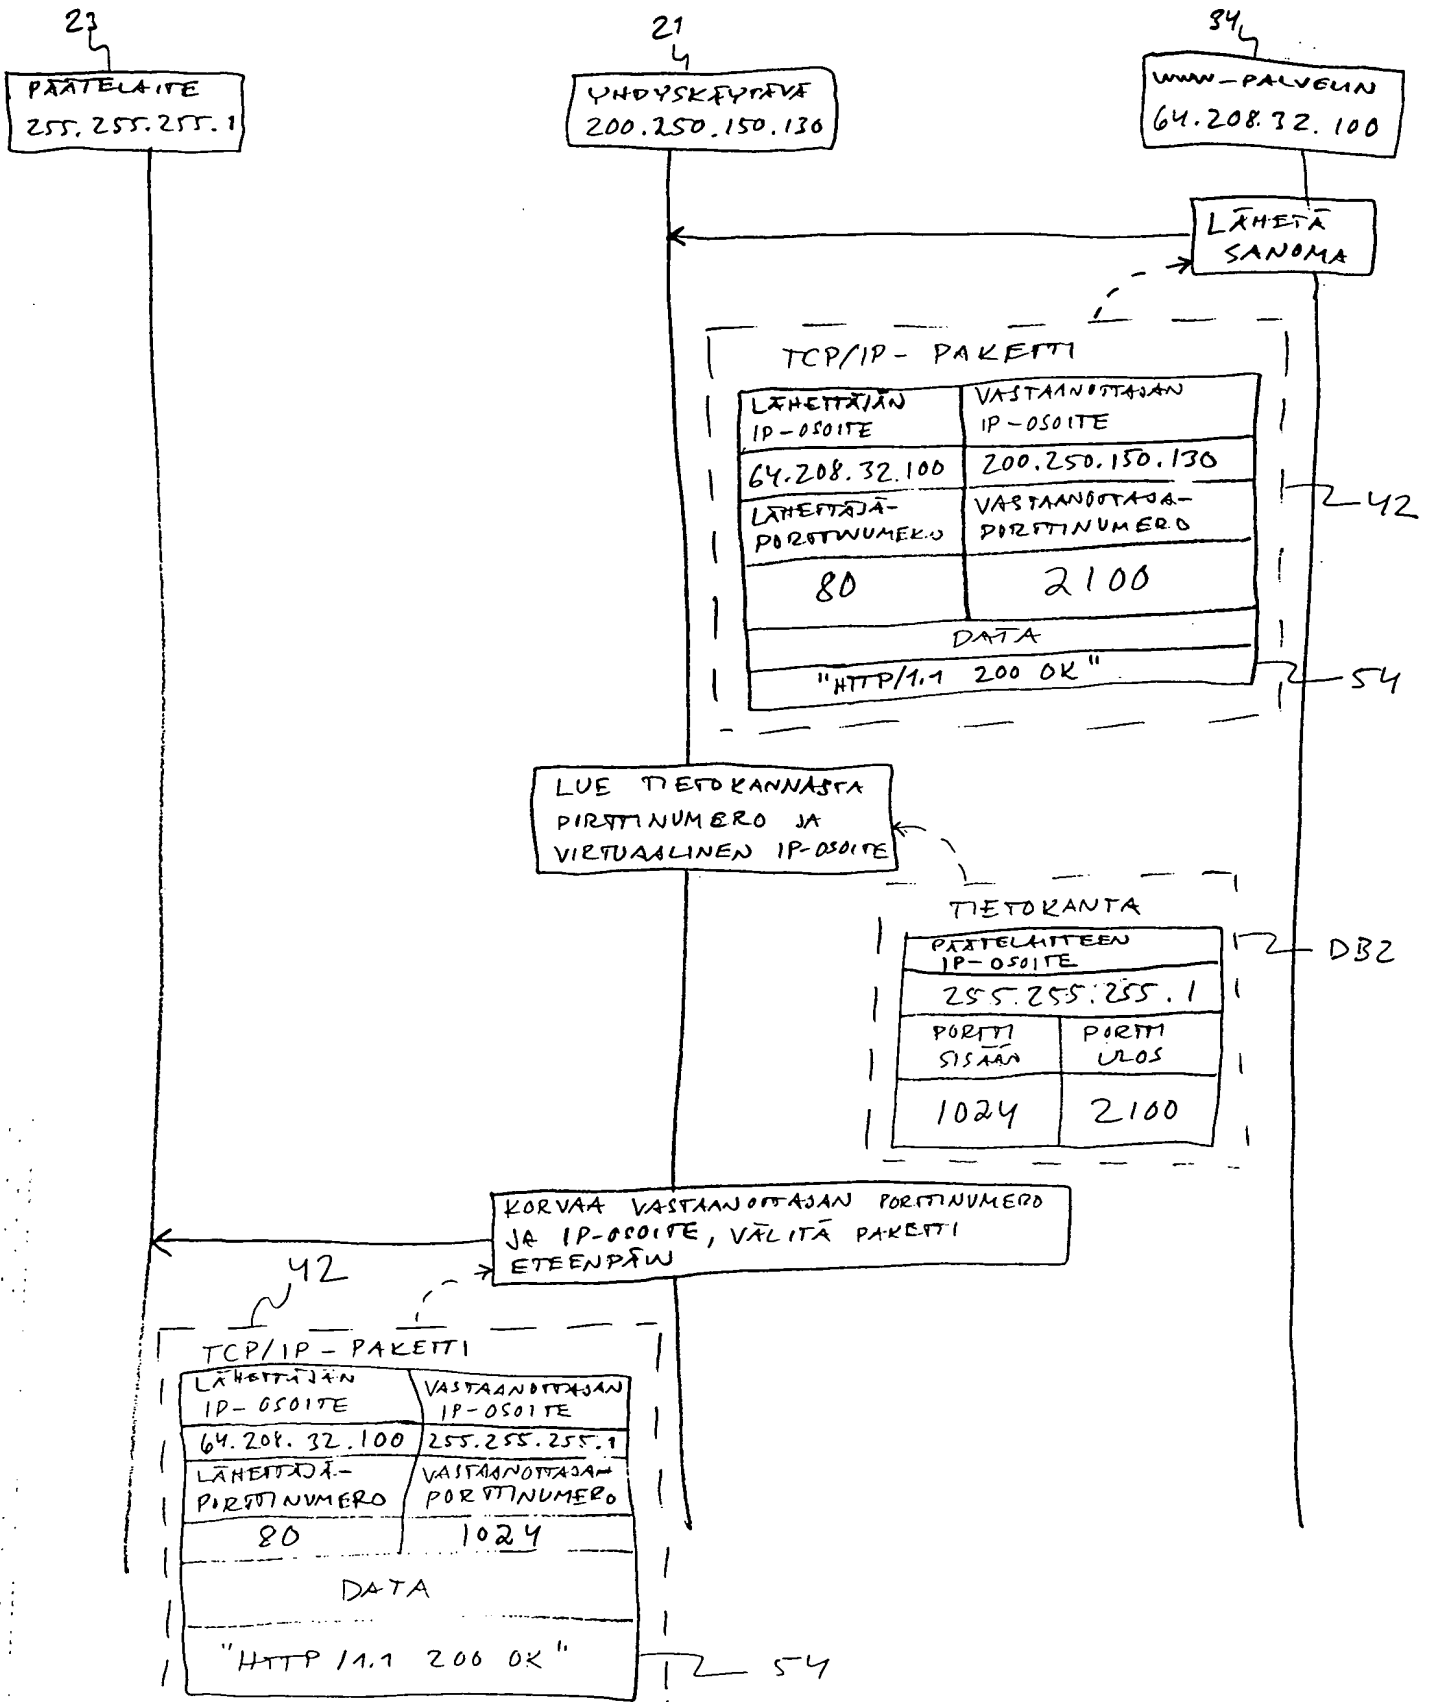 23
21
34
PÄÄTELAITE
255.255.255.1
YHDYSKÄYTÄVÄ
200.250.150.130
WWW-PALVELIN
64.208.32.100
LÄHETÄ
SANOMA
TCP/IP- PAKETTI
LÄHETTÄJÄN
IP-OSOITE
VASTAANOTTAJAN
IP-OSOITE
64.208.32.100
200.250.150.130
LÄHETTÄJÄ-
PORTTINUMERO
VASTAANOTTAJA-
PORTTINUMERO
42
80
2100
DATA
"HTTP/1.1 200 OK"
54
LUE TIETOKANNASTA
PIRTTINUMERO JA
VIRTUAALINEN IP-OSOITE
TIETOKANTA
PÄÄTELAITTEEN
IP-OSOITE
DB2
255.255.255.1
PORTTI
SISÄÄN
PORTTI
ULOS
1024
2100
KORVAA VASTAANOTTAJAN PORTTINUMERO
JA IP-OSOITE, VÄLITÄ PAKETTI
ETEENPÄIN
42
TCP/IP-PAKETTI
LÄHETTÄJÄN
IP-OSOITE
VASTAANOTTAJAN
IP-OSOITE
64.208.32.100
255.255.255.1
LÄHETTÄJÄ-
PORTTINUMERO
VASTAANOTTAJAN
PORTTINUMERO
80
1024
DATA
"HTTP/1.1 200 OK"
54